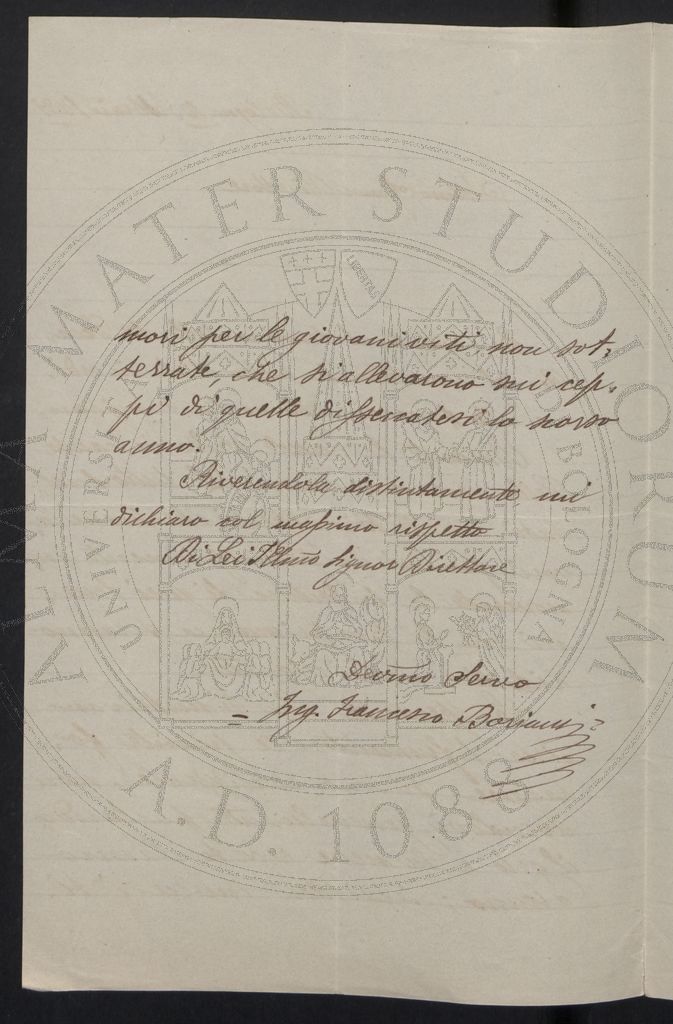 mori, per le giovani viti, non sot,
terrate, che si allevarono sui cep,
pi di quelle disseccatesi lo scorso
anno.
Riverendola distintamente mi
dichiaro col massimo rispetto
Di Lei Illmo Signor Direttore
Devmo Servo
Ing. Francesco
ALMA MATER STUDIORUM
A.D. 1088
UNIVERSITA
BOLOGNA
LIBERTAS